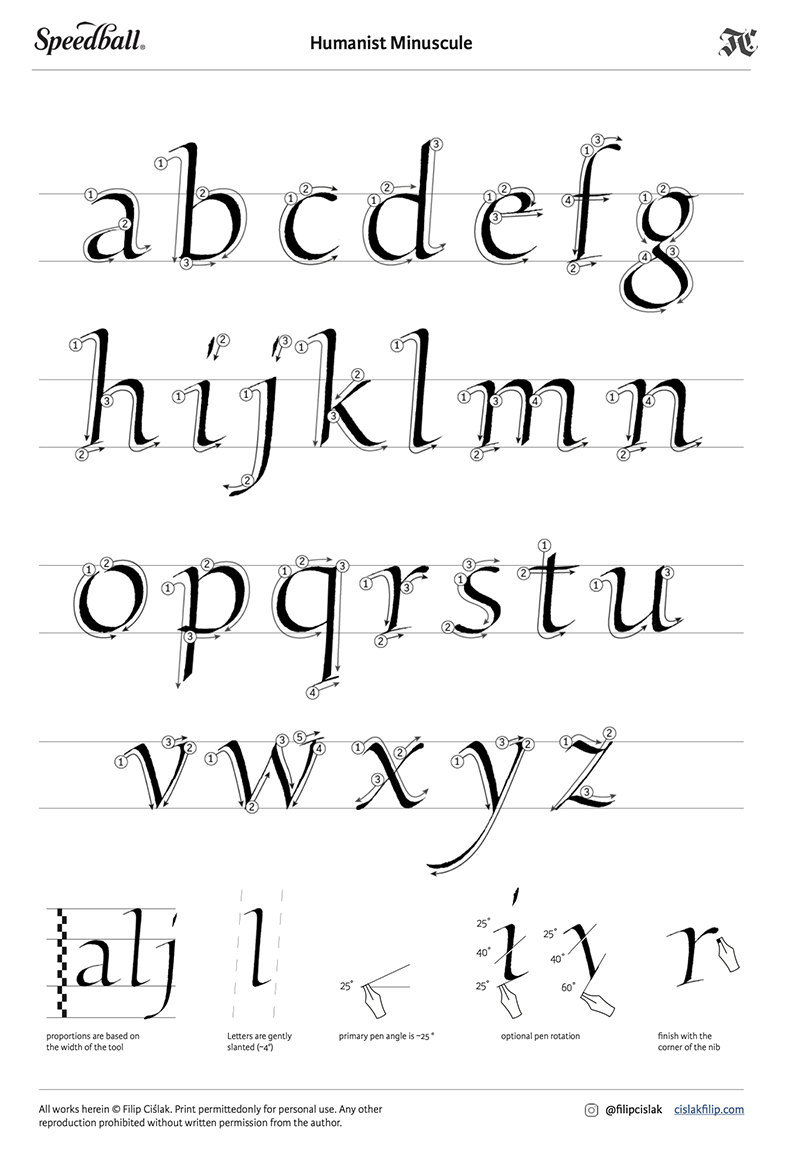 Speedball®
Humanist Minuscule
a b c d e f g
h i j k l m n
o p q r s t u
v w x y z
a l j
l
25°
25°
40°
25°
i
25°
40°
60°
r
proportions are based on
the width of the tool
Letters are gently
slanted (~4°)
primary pen angle is ~25 °
optional pen rotation
finish with the
corner of the nib
All works herein © Filip Ciślak. Print permittedonly for personal use. Any other
reproduction prohibited without written permission from the author.
@filipcislak cislakfilip.com